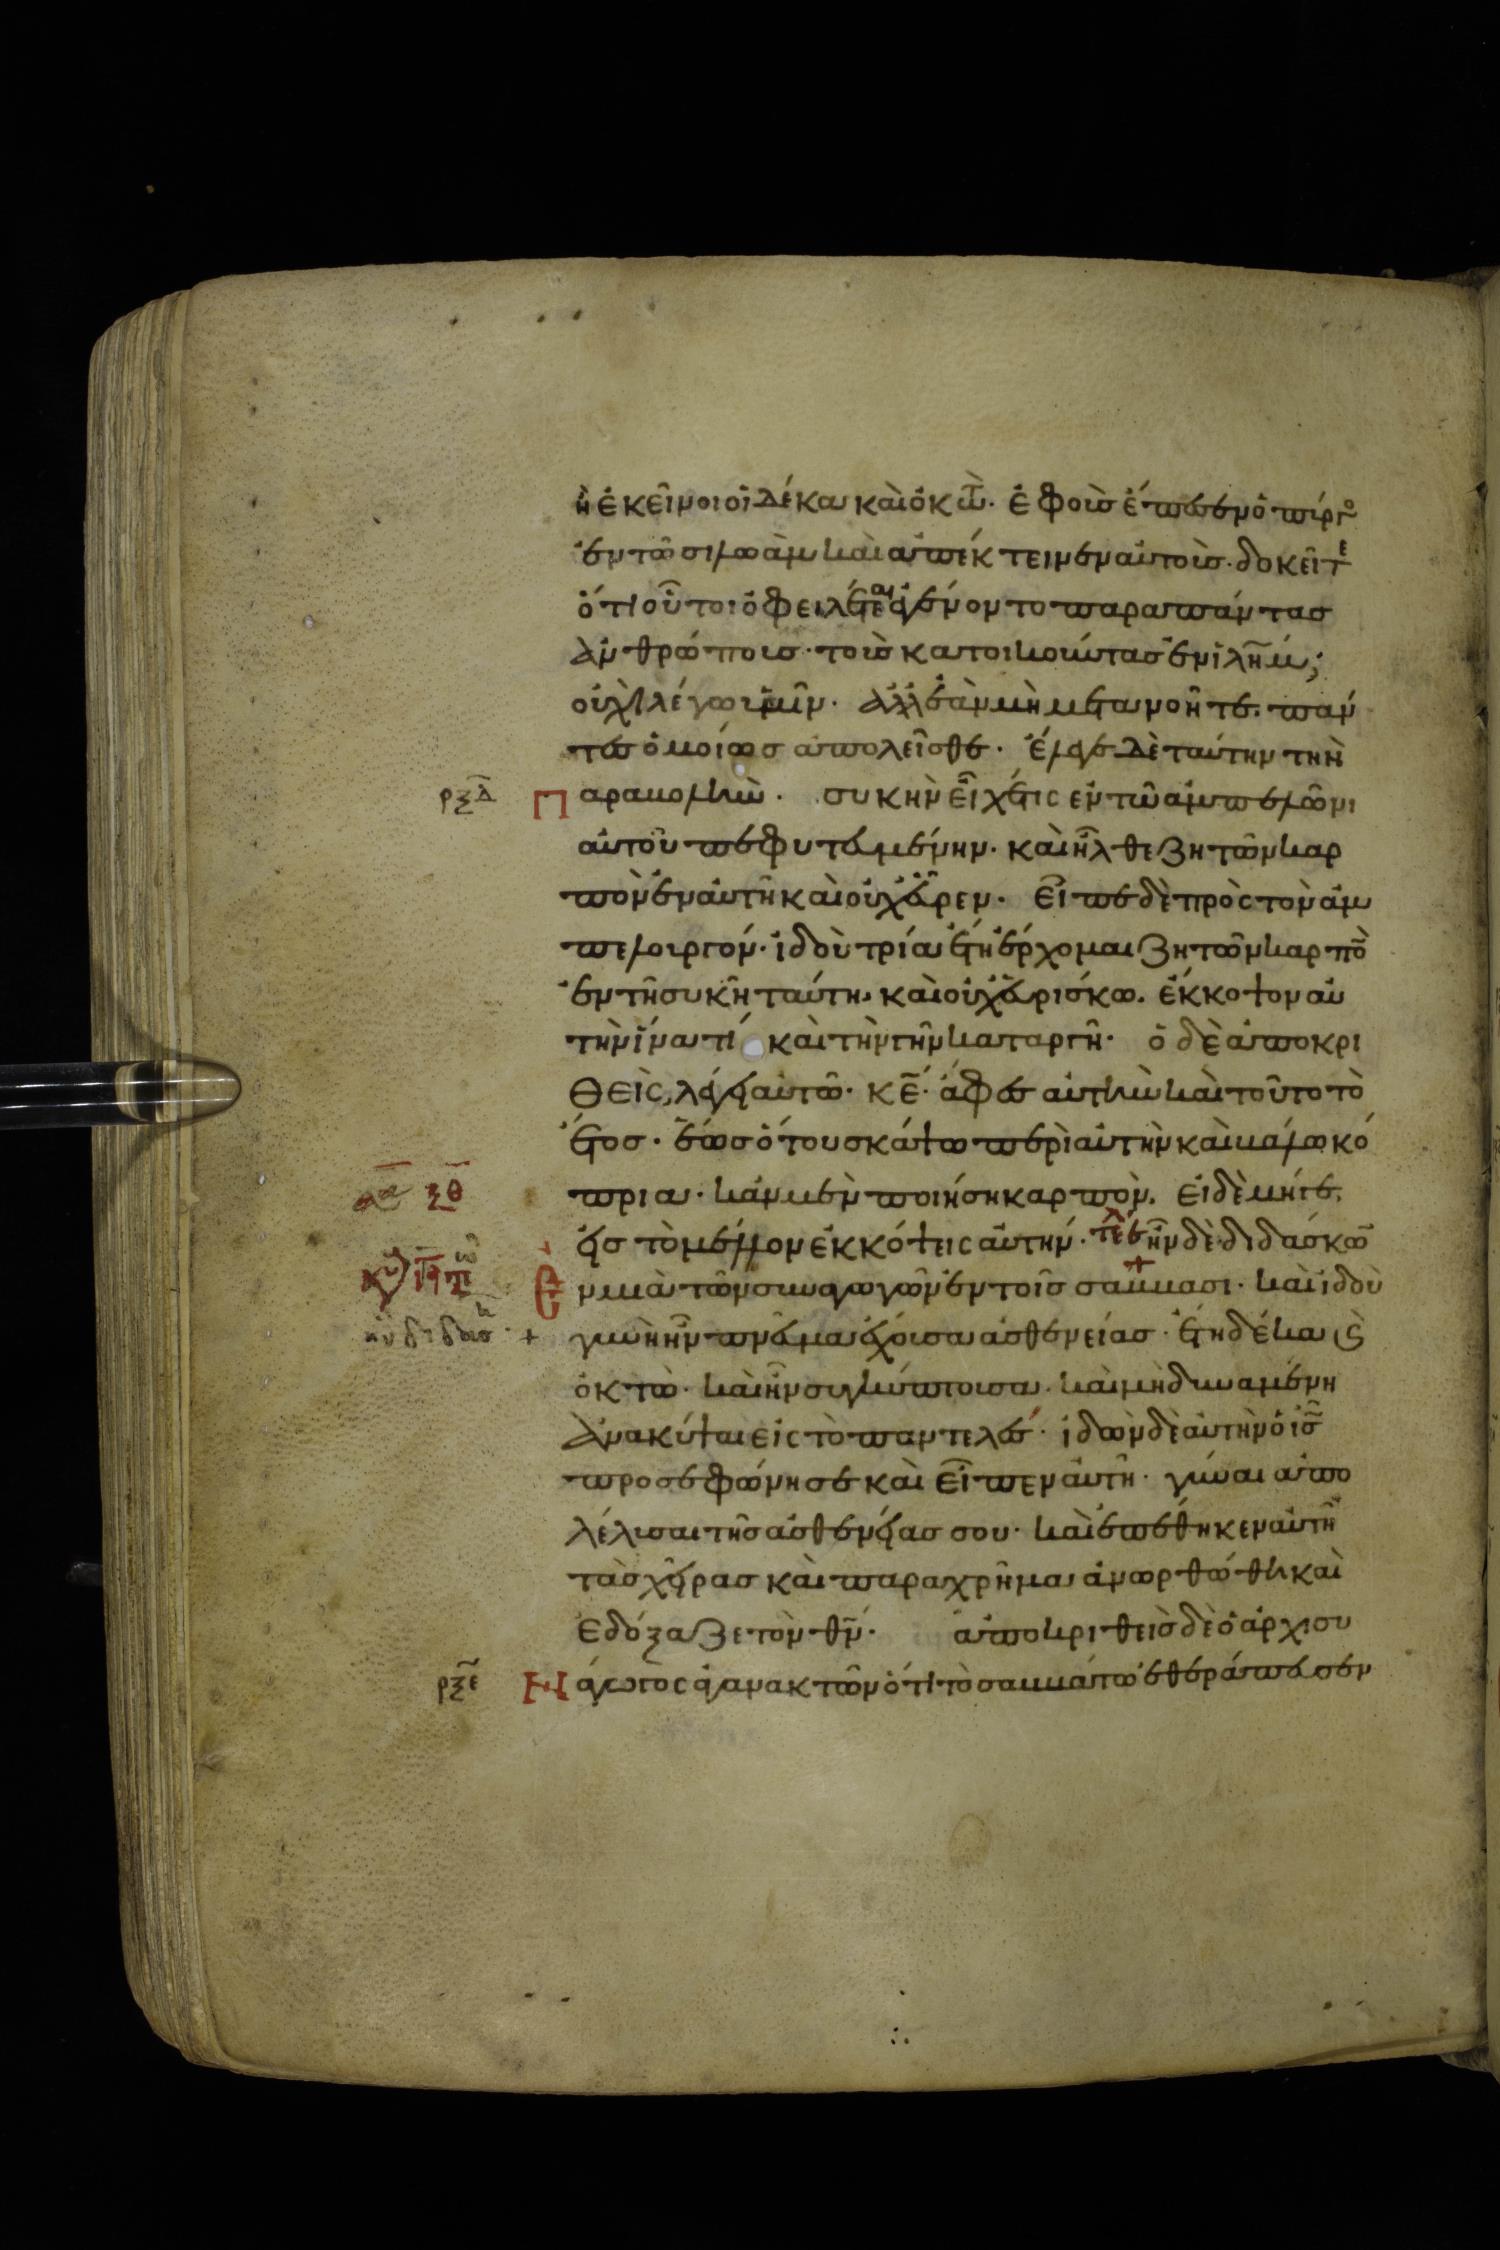 ἢ ἐκεῖνοι οἱ δέκα καὶ ὀκτὼ. ἐφ οὓς ἔπεσεν ὁ πύργο
ἐν τῶ σιλωὰμ καὶ ἀπέκτεινεν αὐτοὺς. δοκεῖτε
ὅτι οὗτοι ὀφειλέται ἐγένοντο παρα πάντας
ἀνθρώπους. τοὺς κατοικοῦντας ἐν ἱλῆμ;
οὐχὶ λέγω ὑμῖν. ἀλλ ἐὰν μὴ μετανοῆτε. πάν
τες ὁμοίως ἀπολεῖσθε. ἔλεγε δὲ ταύτην τὴν
ρξδ Παραβολὴν. συκὴν εἶχέ τις ἐν τῶ ἀμπελῶνι
αὐτοῦ πεφυτευμένην. καὶ ἦλθε ζητῶν καρ
πὸν ἐν αὐτῆ καὶ οὐχ εὗρεν. εἶπε δὲ πρὸς τὸν ἀμ
πελουργόν. ἰδοὺ τρία ἔτη ἔρχομαι ζητῶν καρπὸ
ἐν τῆ συκῆ ταύτη, καὶ οὐχ εὑρίσκω. ἔκκοψον αὐ
τὴν ἵνα τί καὶ τὴν γῆν καταργῆ. ὁ δὲ ἀποκρι
θεὶς, λέγει αὐτῶ. κε. ἄφες αὐτὴν καὶ τοῦτο τὸ
ἔτος. ἕως ὅτου σκάψω περὶ αὐτὴν καὶ βάλω κό
πρια. κἂν μὲν ποιήση καρπὸν. εἰ δὲ μήγε,
εἰς τὸ μέλλον ἐκκόψεις αὐτήν. ἦν δὲ διδάσκω
Ἐν μιᾶ τῶν συναγωγῶν ἐν τοῖς σάββασι. καὶ ἰδοὺ
+ γυνὴ ἦν πνεῦμα ἔχουσα ἀσθενείας. ἔτη δέκα καὶ
ὀκτὼ. καὶ ἦν συγκύπτουσα. καὶ μὴ δυναμένη
ἀνακύψαι εἰς τὸ παντελές. ἰδὼν δὲ αὐτὴν ὁ ις
προσεφώνησε καὶ εἶπεν αὐτῆ. γύναι ἀπο
λέλυσαι τῆς ἀσθενείας σου. καὶ ἐπέθηκεν αὐτῆ
τὰς χεῖρας καὶ παραχρῆμα ἀνωρθώθη καὶ
ἐδόξαζε τὸν θν. ἀποκριθεὶς δὲ ὁ ἀρχισυ
ρξε Ναγωγος ἀγανακτῶν ὅτι τὸ σαββάτω ἐθεράπευσεν